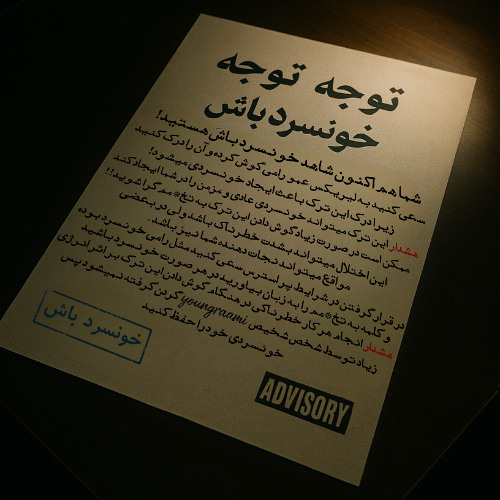 توجه توجه
خونسرد باش
شما هم اکنون شاهد خونسرد باش هستید!
سعی کنید به لیریکس عبور رامی گوش کرده و آن را درک کنید
زیرا درک این ترک باعث ایجاد خونسردی میشود!
هشدار این ترک میتواند خونسردی عادی و مزمن را در شما ایجاد کند
ممکن است در صورت زیاد گوش دادن این ترک به تخ*مم گرا شوید!!
این اختلال میتواند بشدت خطرناک باشد ولی در بعضی
مواقع میتواند نجات دهنده شما نیز باشد.
در قرار گرفتن در شرایط پر استرس سعی کنید مثل رامی خونسرد بوده
و کلمه به تخ*مم را به زبان بیاورید در هر صورت خونسرد باشید
هشدار انجام هر کار خطرناکی در هنگام گوش دادن این ترک بر اثر انرژی
زیاد توسط شخص شخیص youngraami گردن گرفته نمیشود پس
خونسردی خود را حفظ کنید
خونسرد باش
ADVISORY